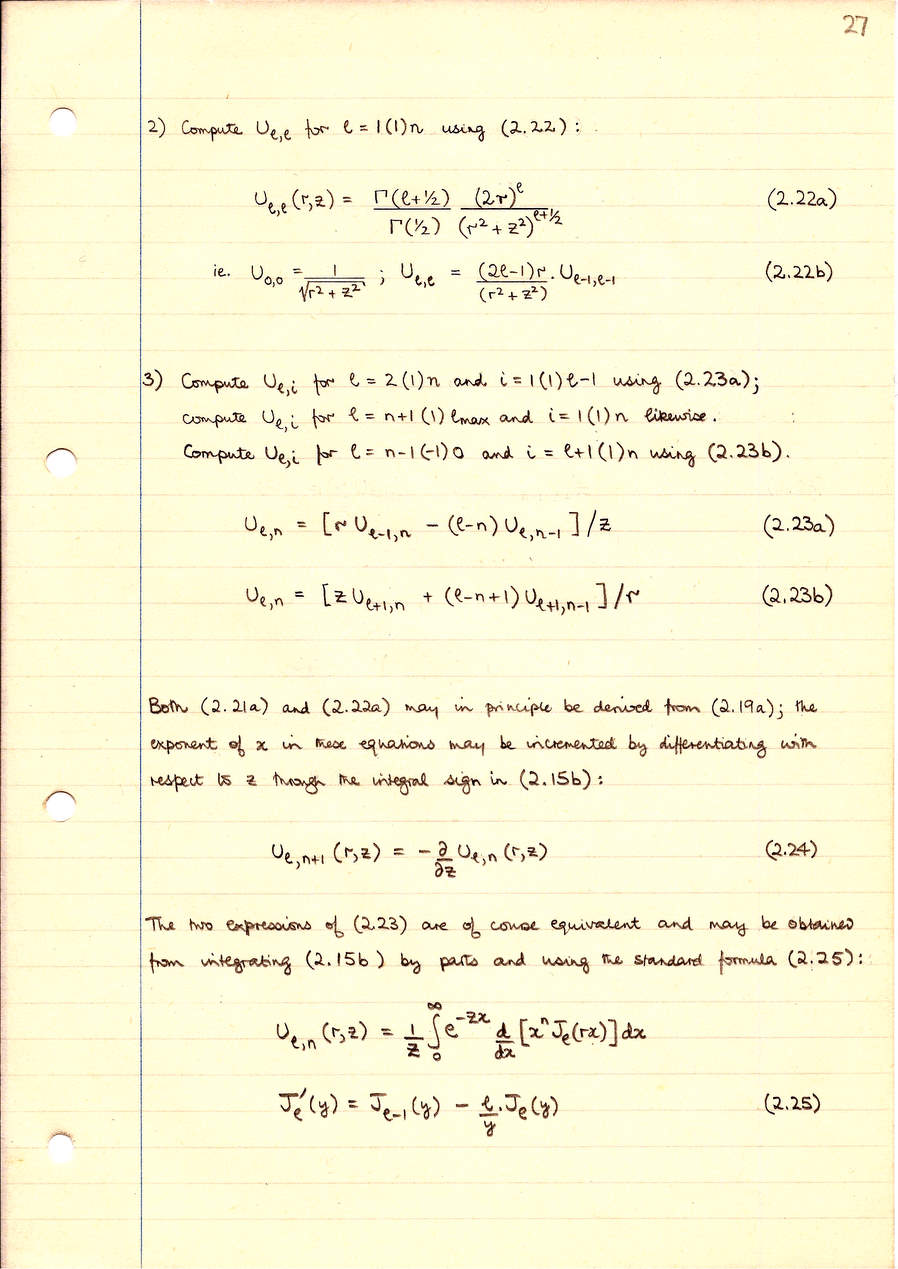 27
2) Compute U_{ℓ,ℓ} for ℓ = 1(1)n using (2.22) :
U_{ℓ,ℓ}(r,z) = Γ(ℓ+½)/Γ(½) (2r)^ℓ/(r²+z²)^{ℓ+½} (2.22a)
ie. U_{0,0} = 1/√(r²+z²) ; U_{ℓ,ℓ} = (2ℓ-1)r/(r²+z²) . U_{ℓ-1,ℓ-1} (2.22b)
3) Compute U_{ℓ,i} for ℓ = 2(1)n and i = 1(1)ℓ-1 using (2.23a);
compute U_{ℓ,i} for ℓ = n+1(1)ℓmax and i = 1(1)n likewise.
Compute U_{ℓ,i} for ℓ = n-1(-1)0 and i = ℓ+1(1)n using (2.23b).
U_{ℓ,n} = [r U_{ℓ-1,n} - (ℓ-n) U_{ℓ,n-1}]/z (2.23a)
U_{ℓ,n} = [z U_{ℓ+1,n} + (ℓ-n+1) U_{ℓ+1,n-1}]/r (2.23b)
Both (2.21a) and (2.22a) may in principle be derived from (2.19a); the
exponent of x in these equations may be incremented by differentiating with
respect to z through the integral sign in (2.15b) :
U_{ℓ,n+1}(r,z) = - ∂/∂z U_{ℓ,n}(r,z) (2.24)
The two expressions of (2.23) are of course equivalent and may be obtained
from integrating (2.15b) by parts and using the standard formula (2.25) :
U_{ℓ,n}(r,z) = 1/z ∫_0^∞ e^{-zx} d/dx [x^n J_ℓ(rx)] dx
J_ℓ'(y) = J_{ℓ-1}(y) - ℓ/y . J_ℓ(y) (2.25)